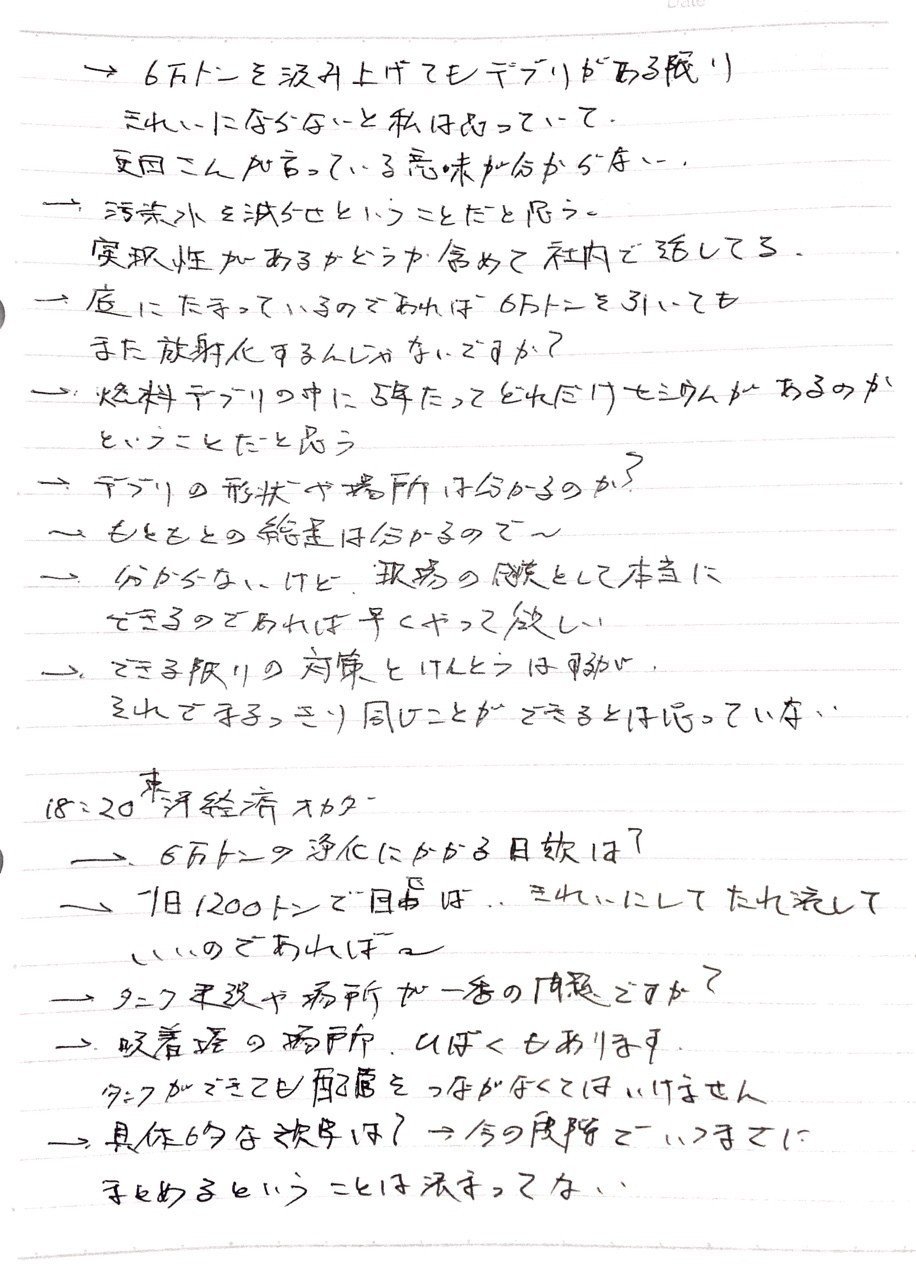 Date
→ 6万トンを汲み上げてもデブリがある限り
きれいにならないと私は思っていて、
更田さんが言っている意味が分からない、
→ 汚染水を減らせということだと思う。
実現性があるかどうか含めて社内で話してる、
→ 底にたまっているのであれば6万トンを引いても
また放射化するんじゃないですか?
→ 燃料デブリの中に5年たってどれだけセシウムがあるのか
ということだと思う
→ デブリの形状や場所は分かるのか?
〜 もともとの総量は分かるので〜
→ 分からないけど、現場の感覚として本当に
できるのであれば早くやって欲しい
→ できる限りの対策とけんとうはするが、
それでまるっきり同じことができるとは思っていない
18:20 東洋経済オカダー
→ 6万トンの浄化にかかる日数は?
→ 1日1200トンで回せば、、きれいにしてたれ流して
いいのであれば〜
→ タンク建設や場所が一番の問題ですか?
→ 吸着塔の場所、ひばくもあります、
タンクができても配管をつながなくてはいけません
→ 具体的な次年は?→今の段階でいつまでに
まとめるということは決まってない